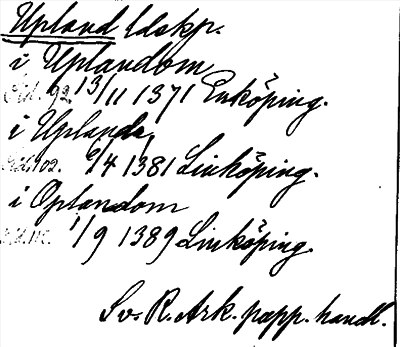 Upland ldskp.
i Uplandom
92 13/11 1371 Enköping.
i Uplanda
102. 9/4 1381 Linköping.
i Oplandom
1/9 1389 Linköping.
Sv. R. Ark. papp. handl.